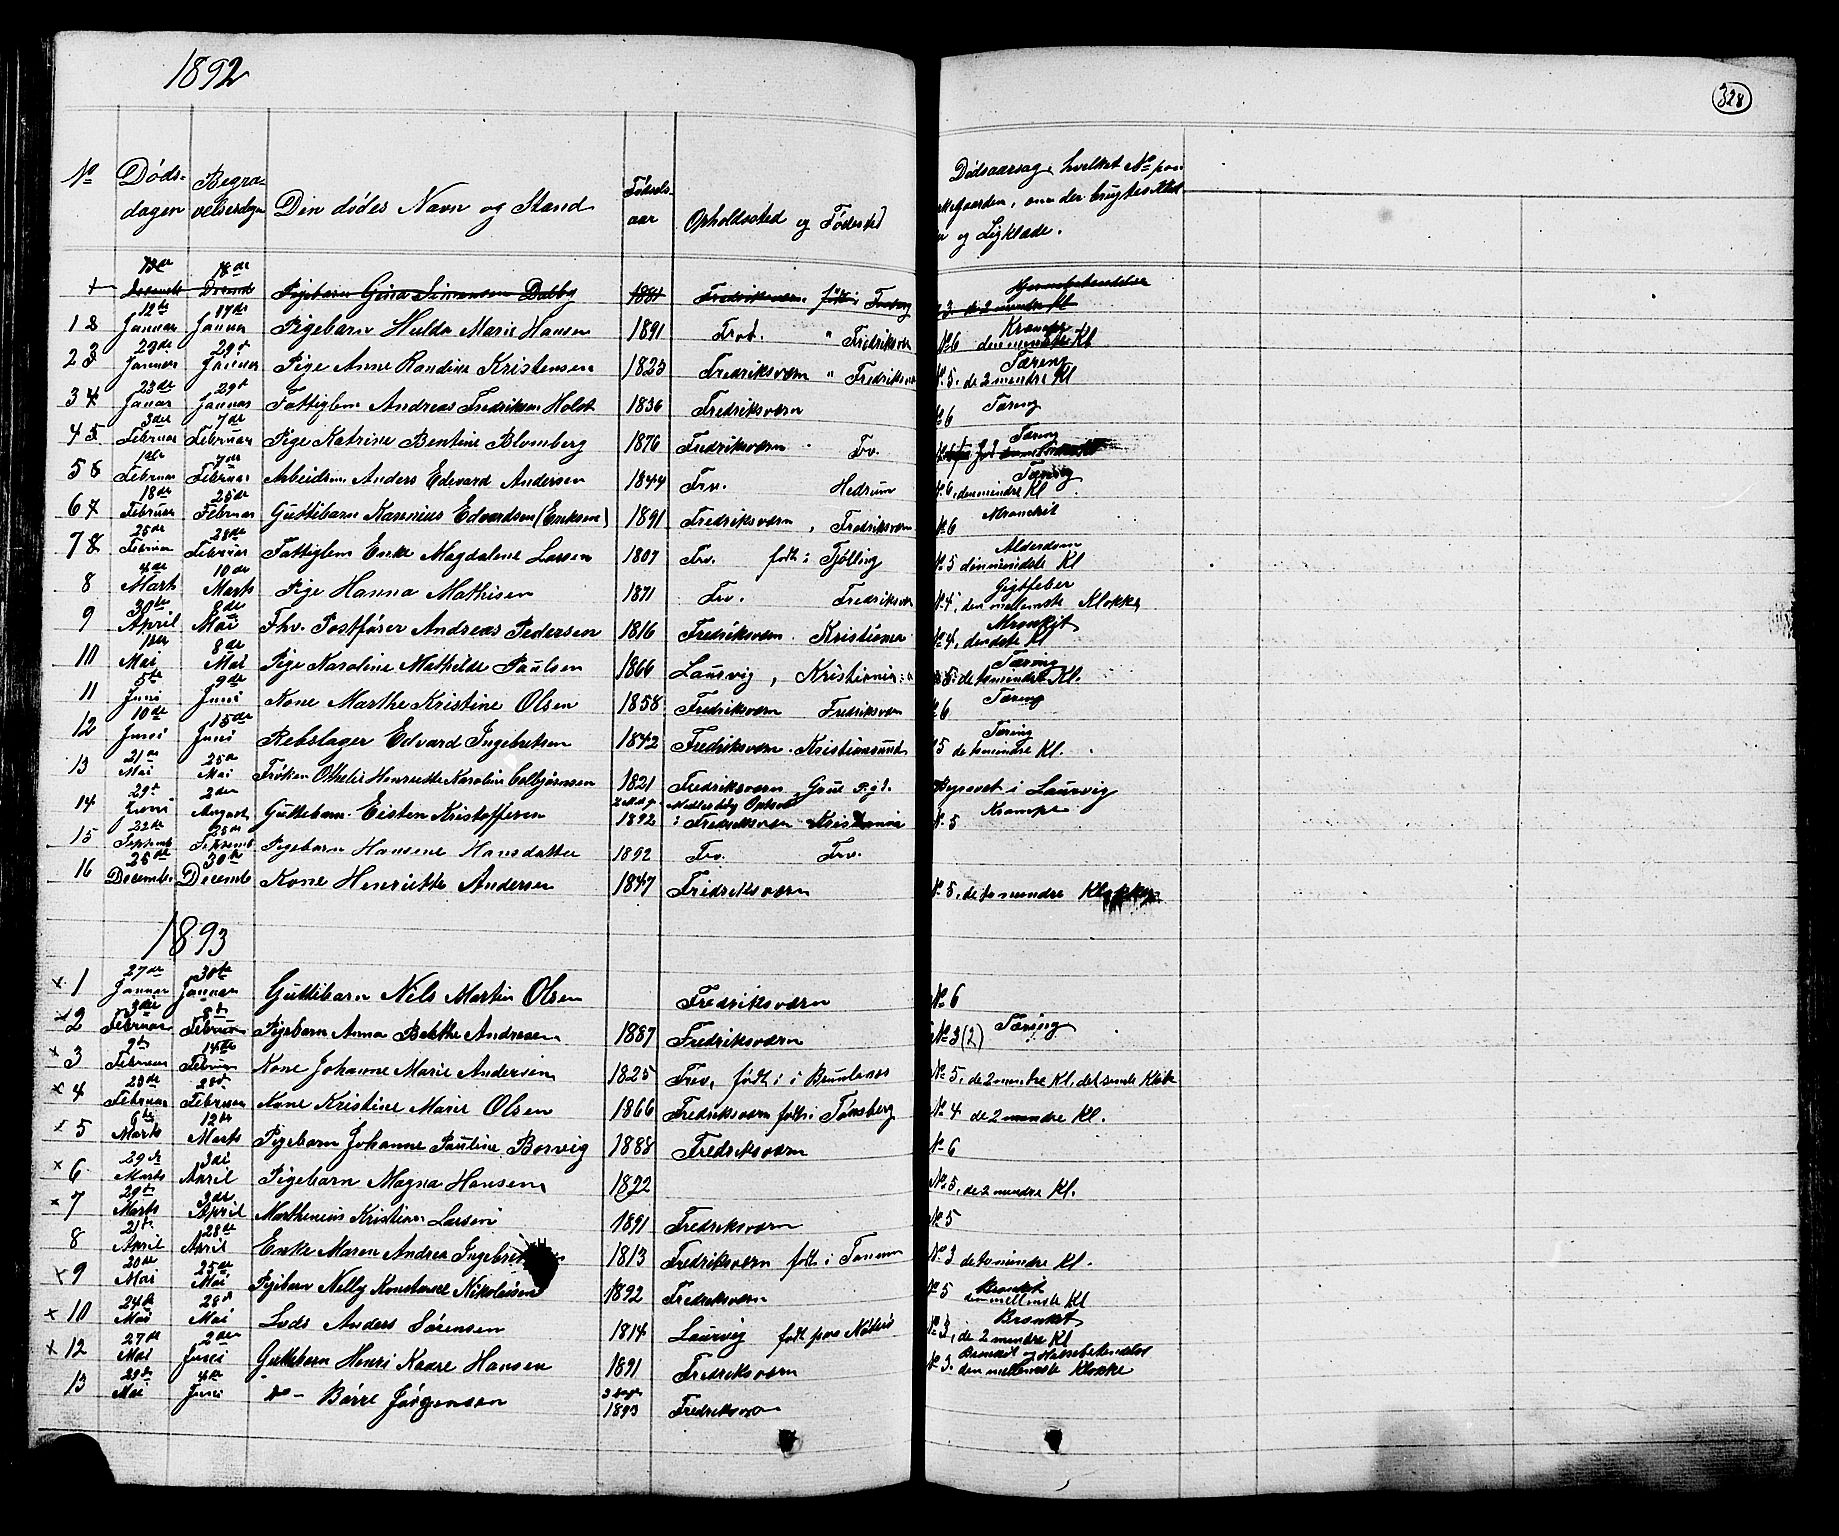 1892
328
No Døds-dagen Begra-velsesdagen Den dødes Navn og Stand Fødsels-aar Opholdssted og Fødested Dødsaarsag, hvilket No paa
kegaarden, om der brugtes Klok
og Ligklæde.
13de 18de Pigebarn Gina Simonsen Dalby 1881 Fredriksværn født i 3. de 2 mindre Kl
1 2 12te Januar 17de Januar Pigebarn Hulda Marie Hansen 1891 Frv. " Fredriksværn No 6 Krampe den mindste Kl
2 3 23de Januar 29de Januar Pige Anne Randine Kristensen 1823 Fredriksværn " Fredriksværn No 5. de 2 mindre Kl Tæring
3 4 23de Januar 29de Januar Fattiglem Andreas Fredriksen Holst 1836 Fredriksværn 6 Tæring
4 5 3die Februar 7de Februar Pige Katrine Bentine Blomberg 1876 Fredriksværn Frv. Tæring
5 6 1ste Februar 7de Februar Arbeidsm. Anders Edevard Andersen 1844 Frv. Hedrum No 6, den mindre Kl Tæring
6 7 18de Februar 25de Februar Guttebarn Karenius Edvardsen (Eriksen) 1891 Fredriksværn, Fredriksværn No 6 Bronchit
7 8 25de Februar 28de Februar Fattiglem Enke Magdalene Larsen 1807 Frv. født i Tjølling No 5 den mindste Kl Alderdom
8 4de Marts 10de Marts Pige Hanna Mathisen 1871 Frv. Fredriksværn No 4, den mellemste Klokke Gigtfeber
9 30te April 8de Mai Fhv. Postfører Andreas Pedersen 1816 Fredriksværn. Kristiania No 4, Kl Bronkit
10 1ste Mai 8de Mai Pige Karoline Mathilde Paulsen 1866 Laurvig, Kristiania 5. de to mindre Kl. Tæring
11 5te Juni 9de Juni Kone Marthe Kristine Olsen 1858 Fredriksværn Fredriksværn 6 Tæring
12 10de Juni 15de Juni Rebslager Edvard Ingebretsen 1842 Fredriksværn. Kristiansund 5 de to mindre Kl. Tæring
13 21de Mai 25de Mai Frøken Henriette Karoline Colbjørnsen 1821 Fredriksværn Grue Pgl. Bysovet i Laurvig
14 29de Juni 2den August Guttebarn Eisten Kristoffersen 1892 i Fredriksværn Kristiania No 5 Krampe
15 22de Septemb 25de Septemb Pigebarn Hansene Hansdatter 1892 Frv. Frv.
16 25de December 30te Decemb Kone Henriette Andersen 1847 Fridriksværn No 5, de to mindre Klokker
1893
x 1 27de Januar 30te Januar Guttebarn Nils Martin Olsen Fredriksværn No 6
x 2 3die Februar 8de Februar Pigebarn Anna Berthe Andresen 1887 Fredriksværn No 3 (2) Tæring
x 3 9de Februar 14de Februar Kone Johanne Marie Andersen 1825 Frv, født i Brunlanes No 5, de 2 mindre Kl, det sorte Klæde
x 4 23de Februar 28de Februar Kone Kristine Marie Olsen 1866 Fredriksværn født i Tønsberg No 4 de 2 mindre Kl.
x 5 6te Marts 12te Marts Pigebarn Johanne Pauline Borvig 1888 Fredriksværn No 6
x 6 29de Marts 3die April Pigebarn Magna Hansen 1892 No 5, de 2 mindre Kl.
x 7 29de Marts 3die April Marthenius Kristian Larsen 1891 Fredriksværn No 5
8 21de April 28de April Enke Maren Andrea 1813 Fredriksværn født i Tanum No 3 de to mindre Kl.
x 9 20de Mai 25de Mai Pigebarn Nelly Konstanse Nikolaisen 1892 Fredriksværn No 5 Bronkit den mellemste Kl
x 10 24de Mai 28de Mai Lods Anders Sørensen 1814 Laurvig født paa No 3, de 2 mindre Kl Bronkit
x 12 27de Mai 2den Juni Guttebarn Henri Kaare Hansen 1891 Fredriksværn No 3. den mellemste Klokke Bronkit og Halsebetendelse
13 29de Mai 4de Juni do - Børre Jørgensen 3 dage 1893 Fredriksværn